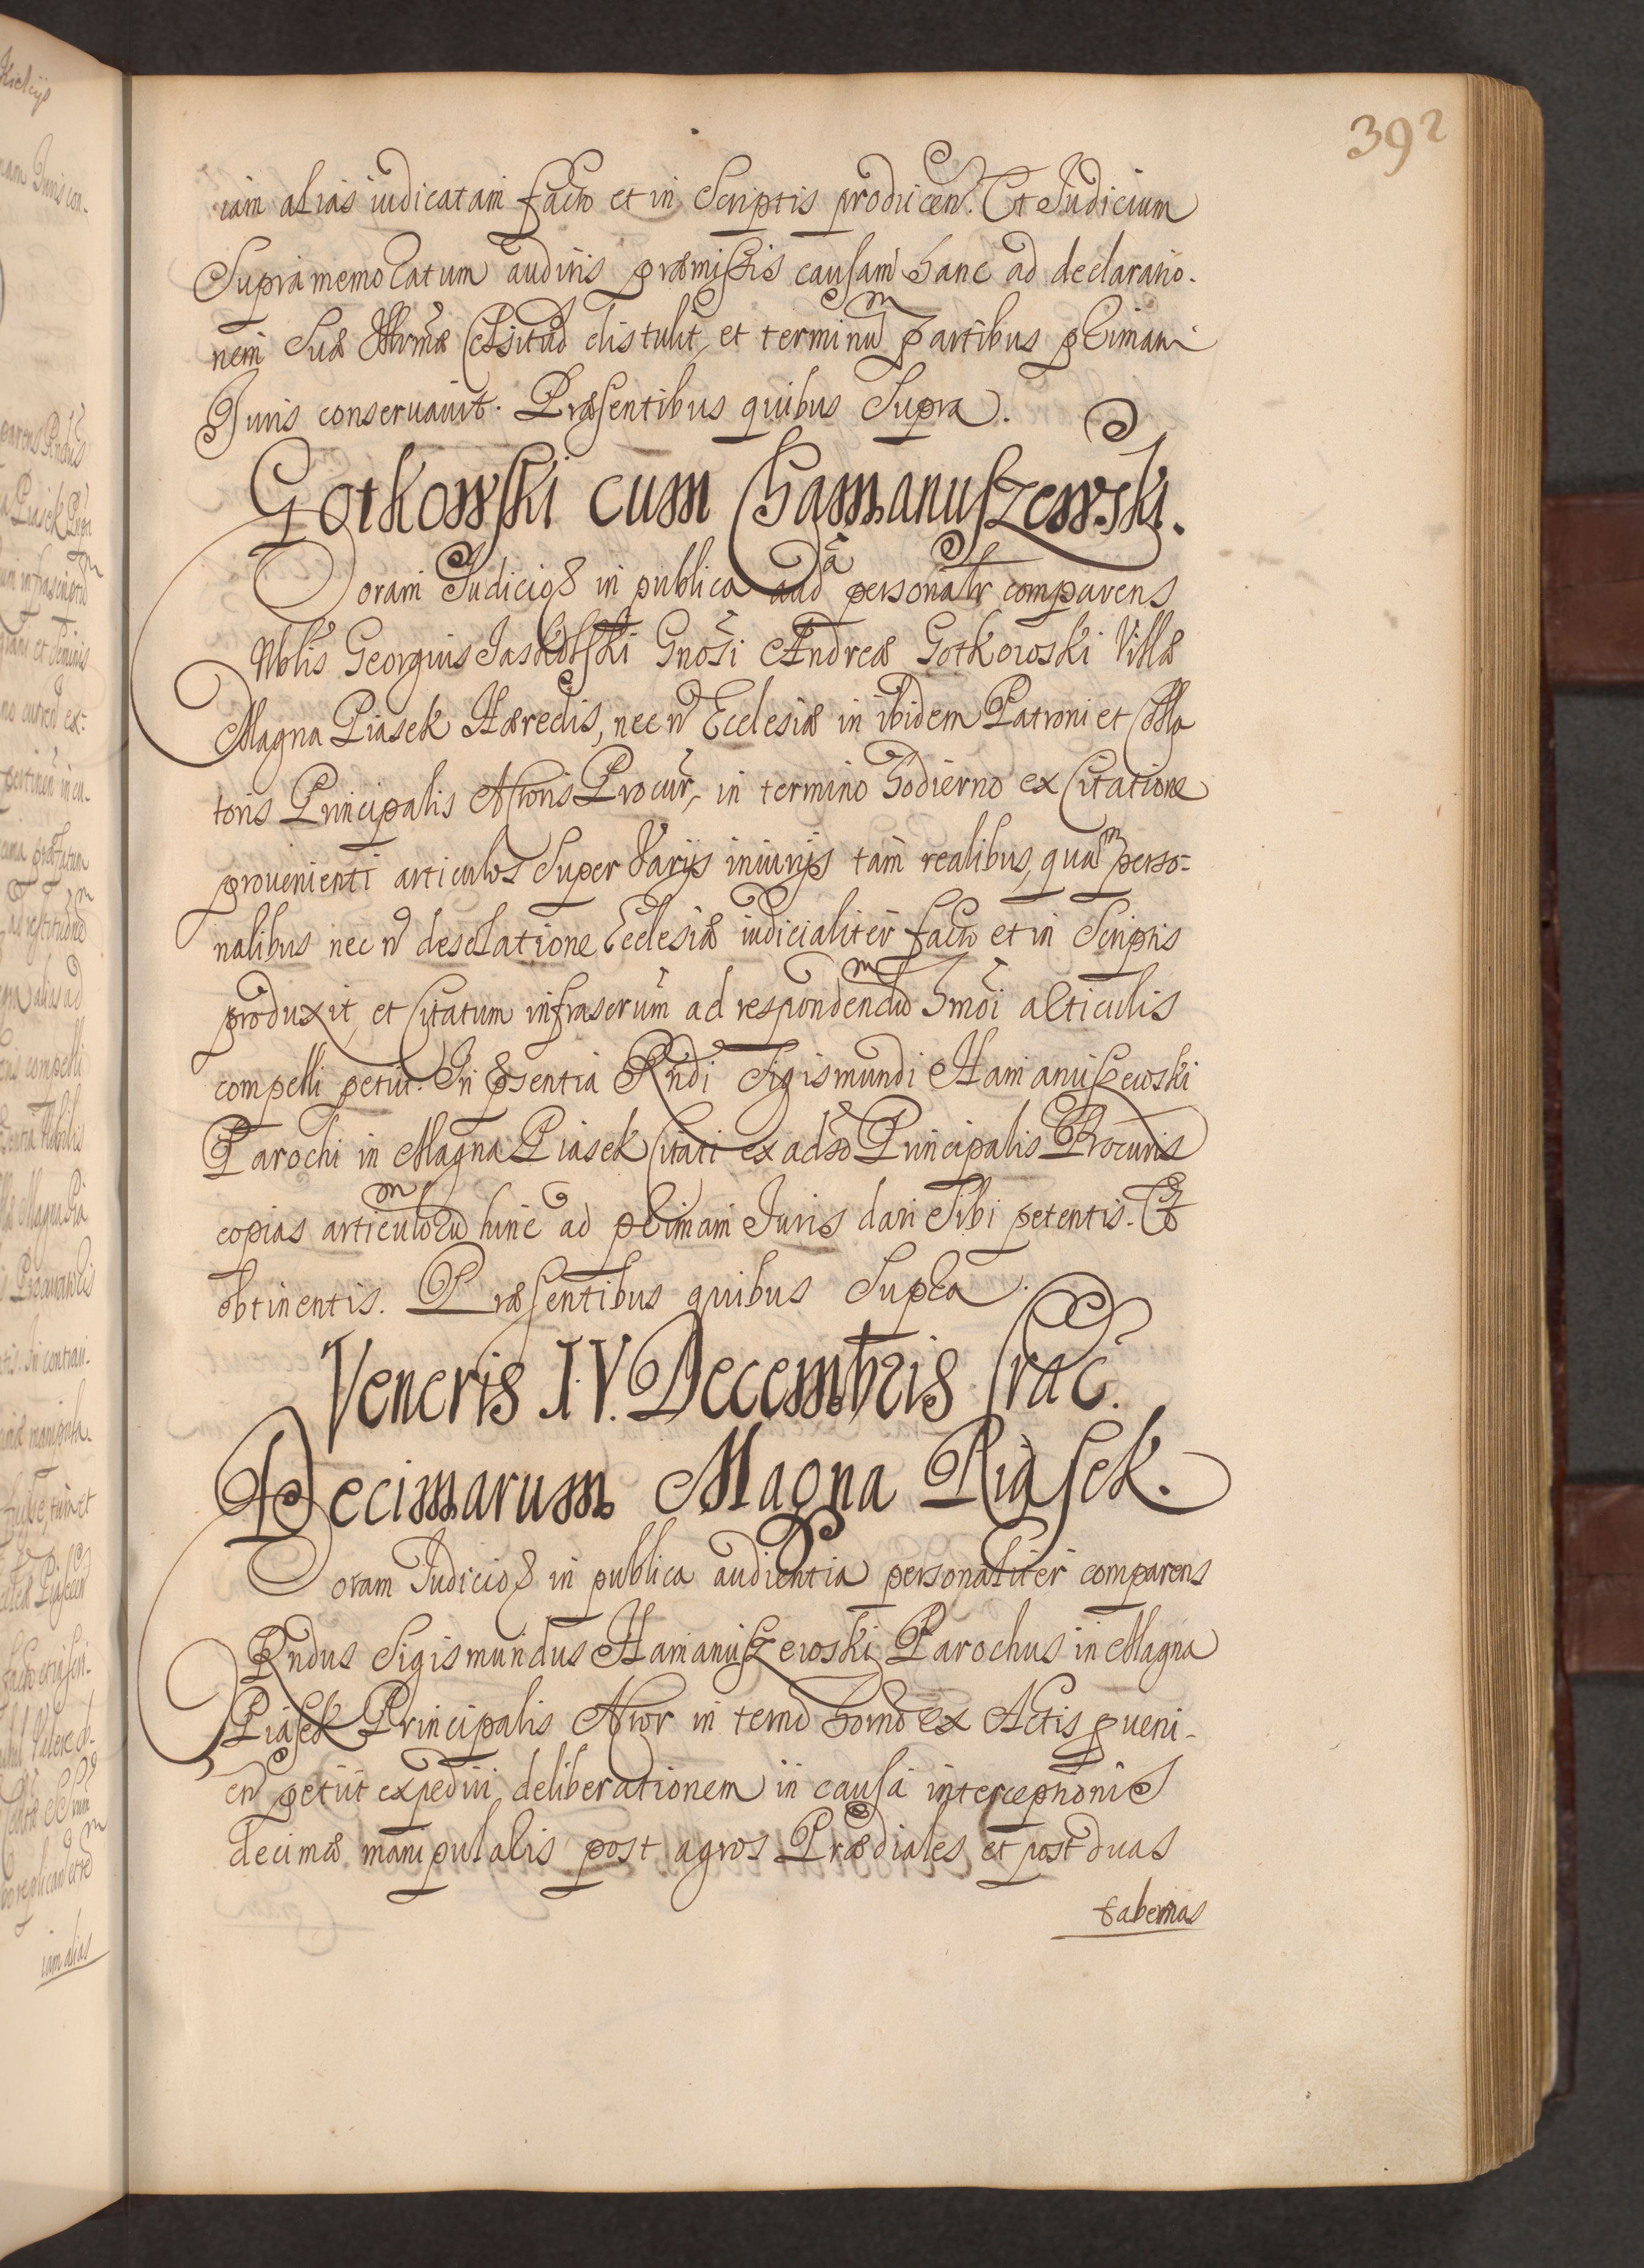 392
iam alias iudicatam facto et in Scriptis producen. Et Judicium
Supramemoratum auditis præmissis causam hanc ad declaratio-
nem Suæ Illrmæ Celsitud distulit, et terminū partibus primam
Juris conseruauit. Præsentibus quibus Supra.
Gotkowski cum Hamanuszewski.
Coram Judicio &c in publica audā personalr comparens
Nblis Georgius Jaskolski Gnosi Andreæ Gotkowski Villæ
Magna Piasek Hæredis, nec n Ecclesiæ in ibidem Patroni et Colla
toris Principalis Actoris Procur, in termino hodierno ex Citatione
prouenienti articulos Super Varijs iniurijs tam realibus, quam perso-
nalibus nec n desolatione Ecclesiæ iudicialiter facto et in Scriptis
produxit, et Citatum infrascrum ad respondendum hmoi articulis
compelli petiit. In psentia Rndi Sigismundi Hamanuszewski
Parochi in Magna Piasek Citati ex adso Principalis Procuris
copias articulorum hinc ad primam Juris dari Sibi petentis. Et
obtinentis. Præsentibus quibus Supra.
Veneris IV. Decembris Crac.
Decimarum Magna Piasek.
Coram Judicio &c in publica audientia personaliter comparens
Rndus Sigismundus Hamanuszewski Parochus in Magna
Piasek Principalis Actor in termo horno ex Actis pueni-
en petiit expediri deliberationem in causa interceptionis
decimæ manipulalis post agros Prædiales et post duas
tabernas